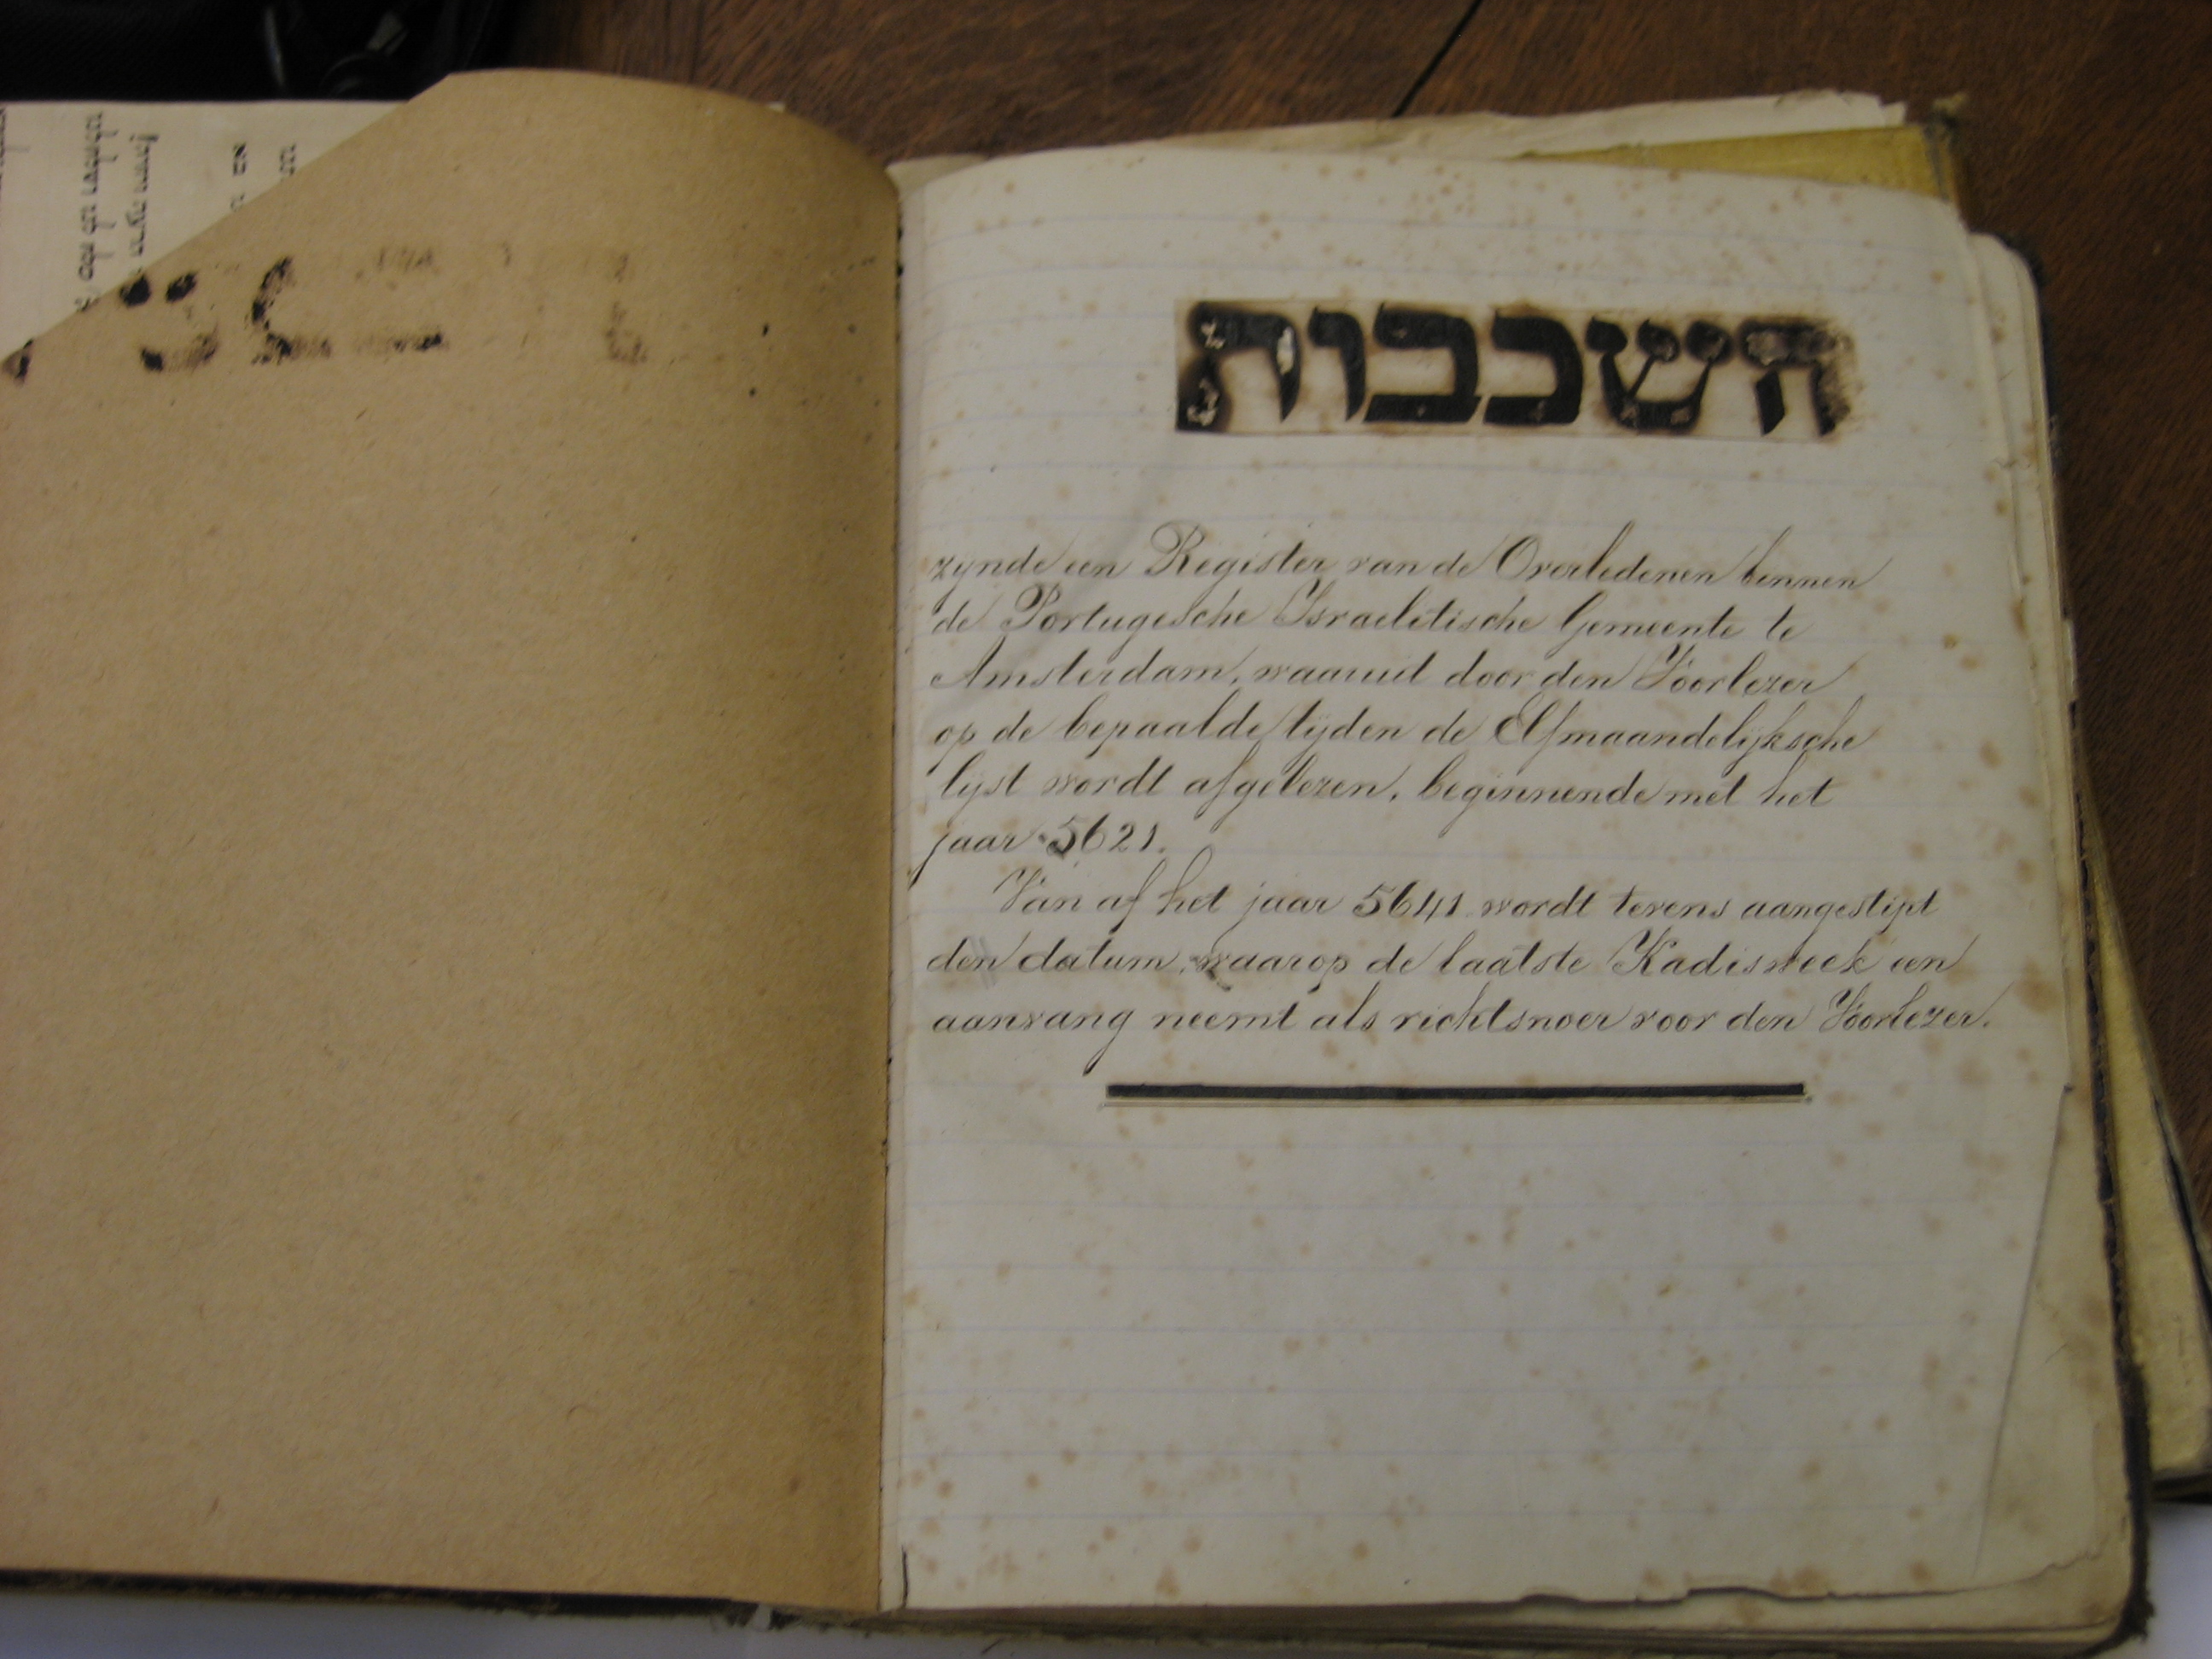 השכבות
zynde een Register van de Overledenen binnen
de Portugesche Israelitische Gemeente te
Amsterdam, waaruit door den Voorlezer
op de bepaalde tyden de Elfmaandelijksche
lyst wordt afgelezen, beginnende met het
jaar 5621.
Van af het jaar 5641 wordt tevens aangestipt
den datum, waarop de laatste Kadisweek een
aanvang neemt als richtsnoer voor den Voorlezer.